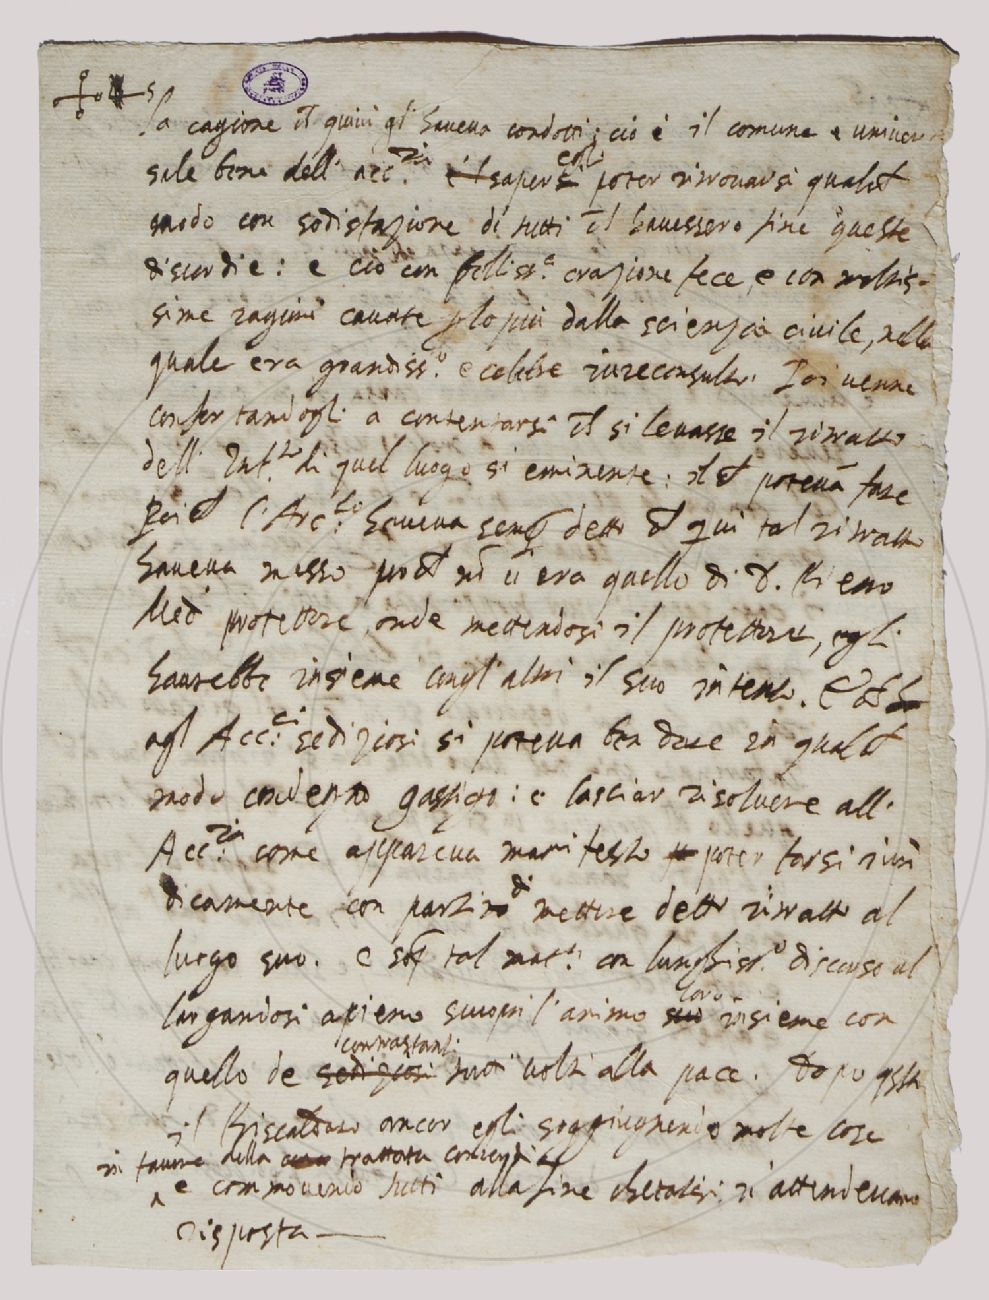 la cagione ch quivi gl' haveva condotti; ciò è il comune e univer
sale bene dell' Acc.ria e'l sapersi egli poter ritrovarsi qualch
modo con sodisfazione di tutti ch havessero fine queste
discordie: e ciò con belliss.a orazione fece, e con moltis-
sime ragioni cavate p lo più dalla scienzia civile, nella
quale era grandiss.o e celebre iureconsulto. Poi venne
confortandogli a contentarsi ch si levasse il ritratto
dell' Inf.to di quel luogo si eminente: il ch potevā fare
Poi ch l'Arc.lo haveva semp detto ch qui tal ritratto
haveva messo p ch nō vi era quello di D. Pietro
Med protettore onde mettendosi il protettore, egli
haurebbe insieme cogl' altri il suo intento. E ch
agl' Acc.ci sediziosi si poteva ben dare in qualch
modo condegno gastigo: e lasciar risolvere all'
Acc.ria come appareva manifesto poter farsi iuri
dicamente con partito di mettere detto ritratto al
luogo suo. e sop tal mat.a con lunghiss.o discorso al
largandosi apieno scuoprì l'animo suo loro insieme con
contrastanti
quello de sediziosi tutti volti alla pace. Dopo qsta
il Riscaldato ancor egli soggiugnendo molte cose
in favore della trattata concordia
e commovendo tutti alla fine chetatisi si attendevano
risposta